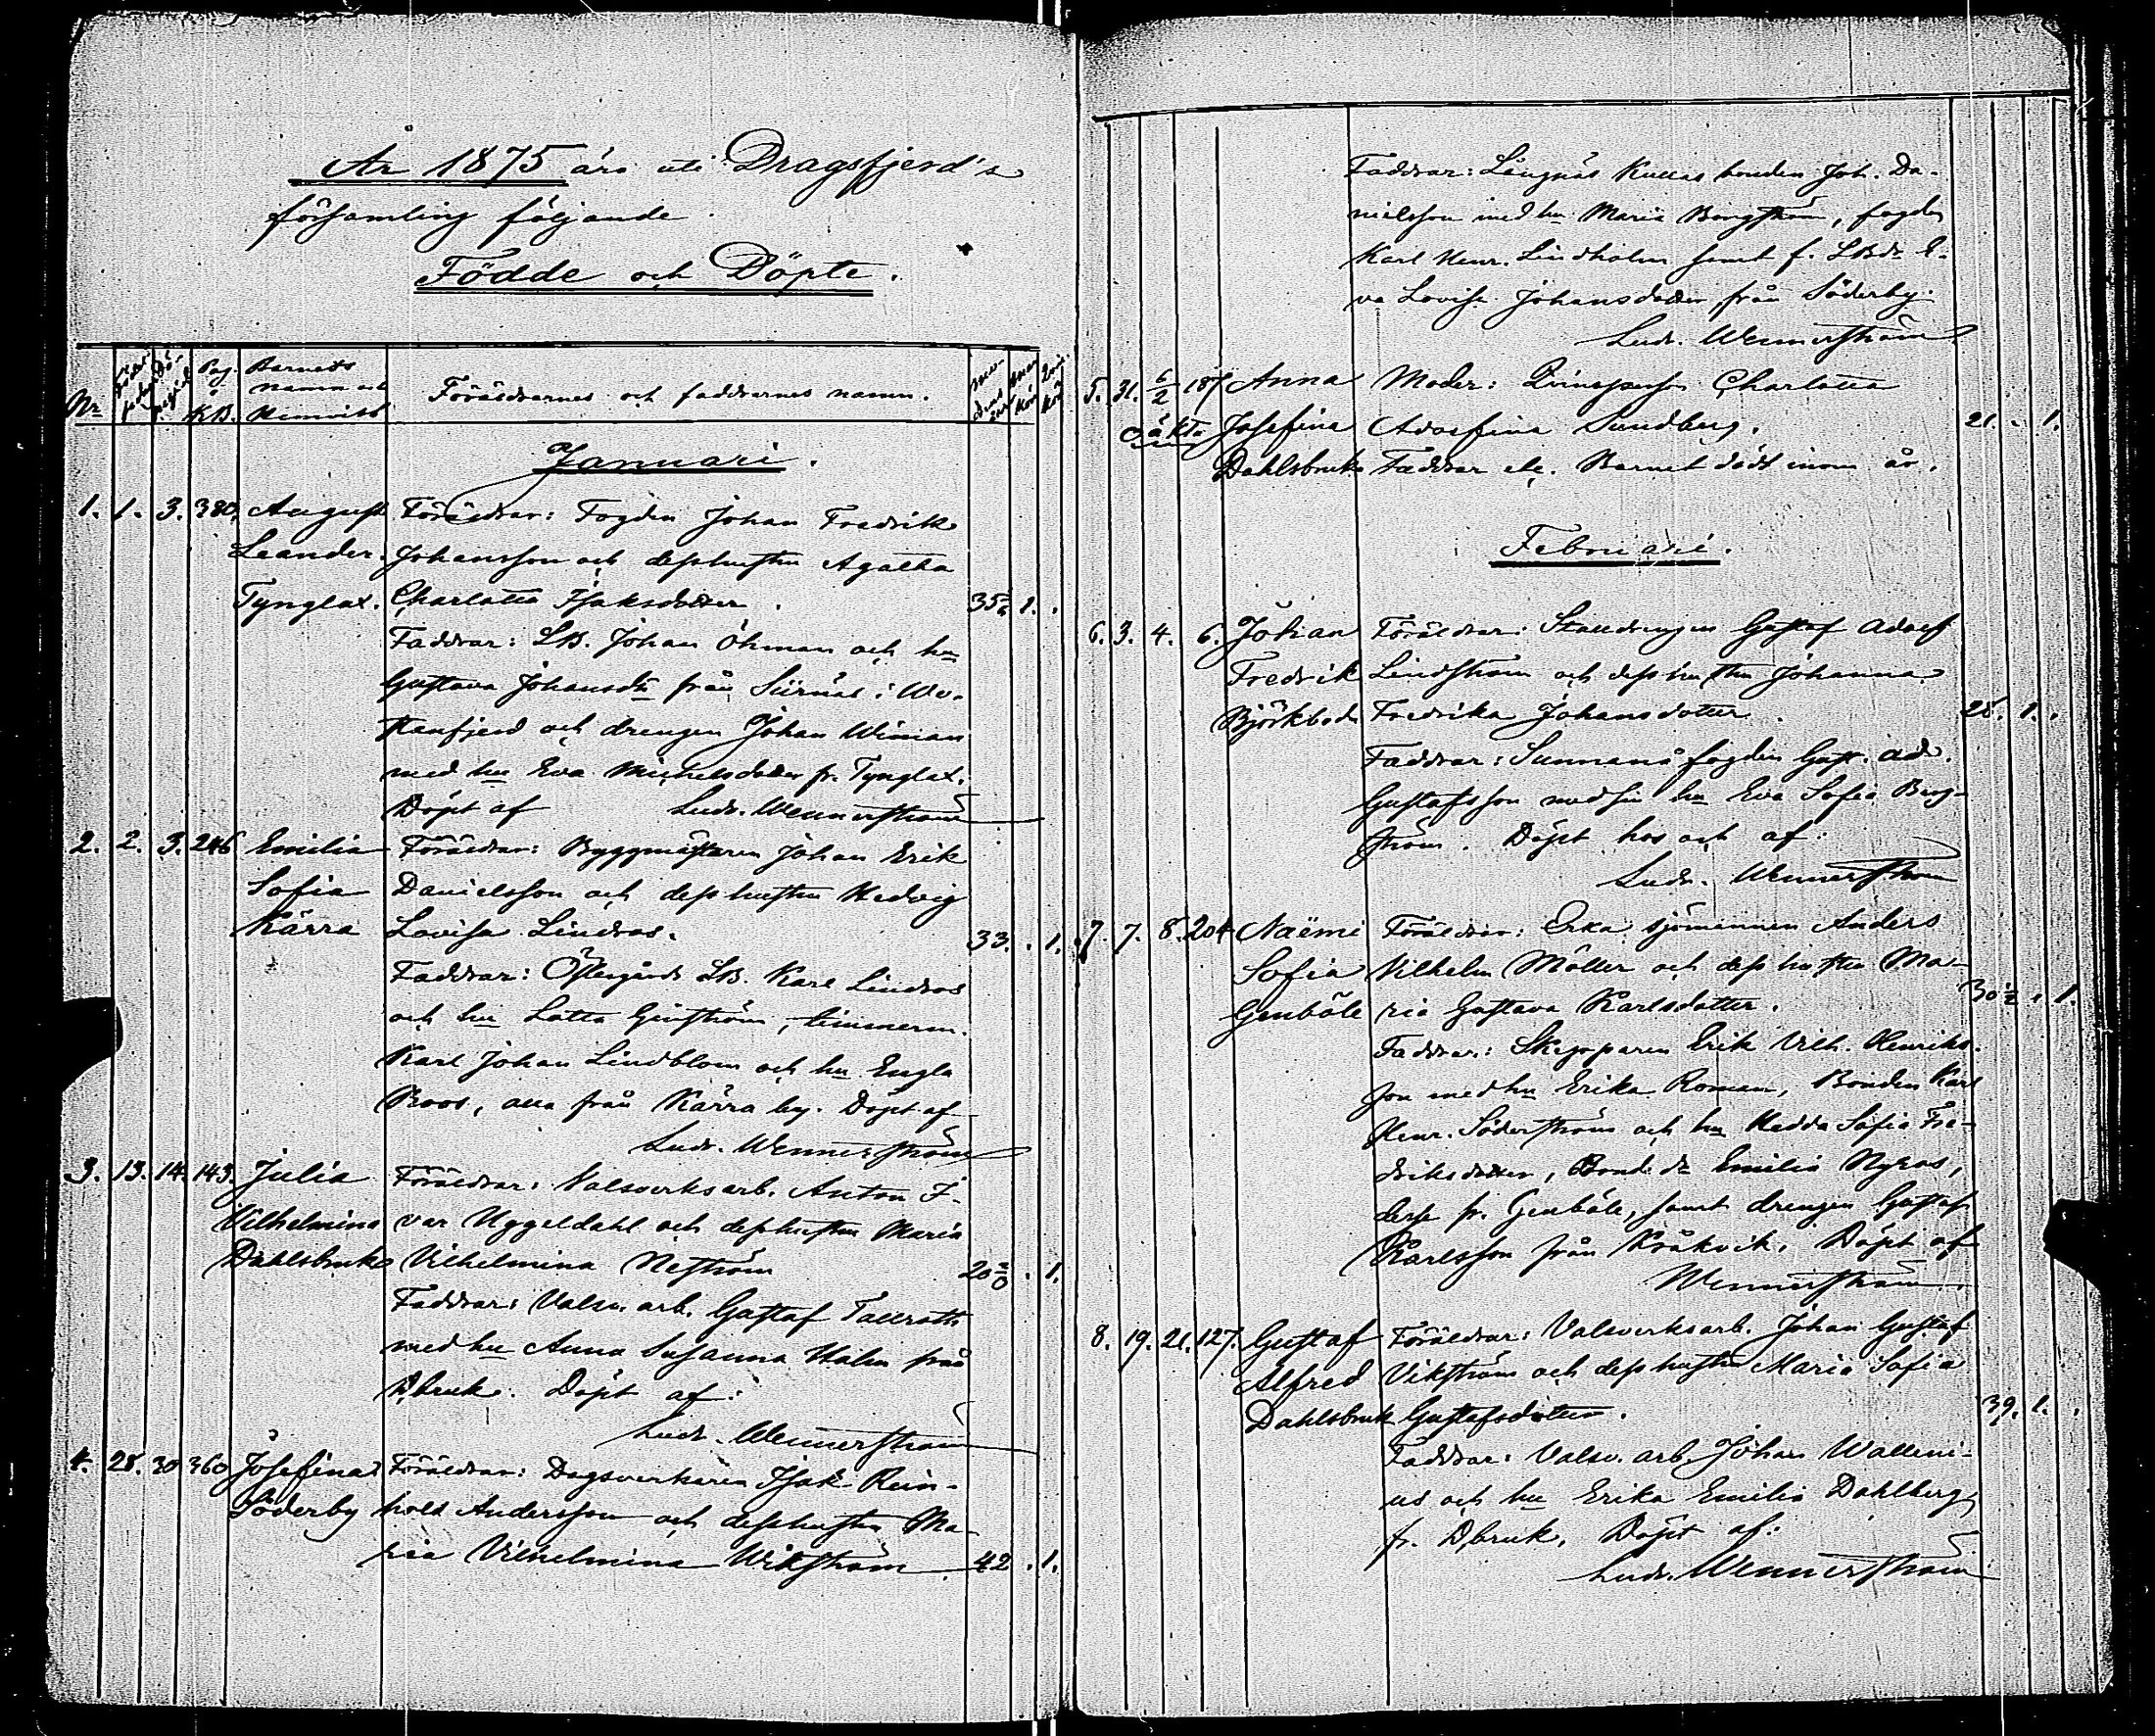 År 1875 äro uti Dragsfjerd's
församling följande
Födde och Döpte.
Nr
Pag. i KB.
Barnets namn och Hemvist
Föräldrarnes och faddrarnes namn.
Januari.
1. 1. 3. 380. August Föräldrar: Fogden Johan Fredrik
Leander. Johansson och dess hustru Agatha
Tynglax. Charlotta Isaksdotter. 35 1.
Faddrar: LB. Johan Öhman och hu
Gustava Johansdtr från i We-
stanfjerd och drengen Johan Wiman
med hu Eva Michelsdotter fr. Tynglax.
Döpt af Ludv. Wennerström
2. 2. 3. 246 Emilia Föräldrar: Byggmästaren Johan Erik
Sofia Danielsson och dess hustru Hedvig
Kärra Lovisa Lindros. 33. . 1.
Faddrar: Östergårds LB. Karl Lindros
och hu Lotta timmerm.
Karl Johan Lindblom och hu Engla
Roos, alla från Kärra by. Döpt af
Ludv. Wennerström
3. 13. 14. 143. Julia Föräldrar: Valsverksarb. Anton I-
Vilhelmina var Uggeldahl och dess hustru Maria
Dahlsbruk Vilhelmina Neström 20 . 1.
Faddrar: Valsv. arb. Gustaf Tallroth
med hu Anna Susanna Holm från
Dbruk. Döpt af:
Ludv. Wennerström
4. 28. 30 360 Josefina Föräldrar: Dagsverkaren Isak Rein-
Söderby hold Andersson och dess hustru Ma-
ria Vilhelmina Wikström 42 . 1.
Faddrar: Långnäs Kullas bonden Joh. Da-
nielsson med hu Maria Bergström, fogden
Karl Henr. Lindholm samt f. LBdr E-
va Lovisa Johansdotter från Söderby.
Ludv. Wennerström
5. 31. 6/2 187 Anna Moder: Qvinspersn Charlotta
oäkta Josefina Adolfina Sundberg. 21. . 1.
Dahlsbruk Faddrar etc. Barnet dödt inom år.
Februari.
6. 3. 4. 6. Johan Föräldrar: Stalldrengen Gustaf Adolf
Fredrik Lindström och dess hustru Johanna
Björkboda Fredrika Johansdotter. 28. 1. .
Faddrar: Sunnanå fogden Gust. Ad.
Gustafsson med sin hu Eva Sofia Berg-
ström. Döpt hos och af:
Ludv. Wennerström
7. 7. 8. 204 Naëmi Föräldrar: Erka sjömannen Anders
Sofia Vilhelm Möller och dess hustru Ma-
Genböle ria Gustava Karlsdotter. 30½ . 1.
Faddrar: Skepparen Erik Vilh. Henriks-
son med hu Erika Roman, Bonden Karl
Henr. Söderström och hu Hedda Sofia Fre-
driksdotter, Bond. dr Emilia Nyroos,
fr. Genböle, samt drengen Gustaf
Karlsson från Kråkvik. Döpt af
Wennerström.
8. 19. 21. 127. Gustaf Föräldrar: Valsverksarb. Johan Gustaf
Alfred Vikström och dess hustru Maria Sofia
Dahlsbruk Gustafsdotter. 39. 1. .
Faddrar: Valsv. arb. Johan Walleni-
us och hu Erika Emilia Dahlberg
fr. Dbruk. Döpt af:
Ludv. Wennerström